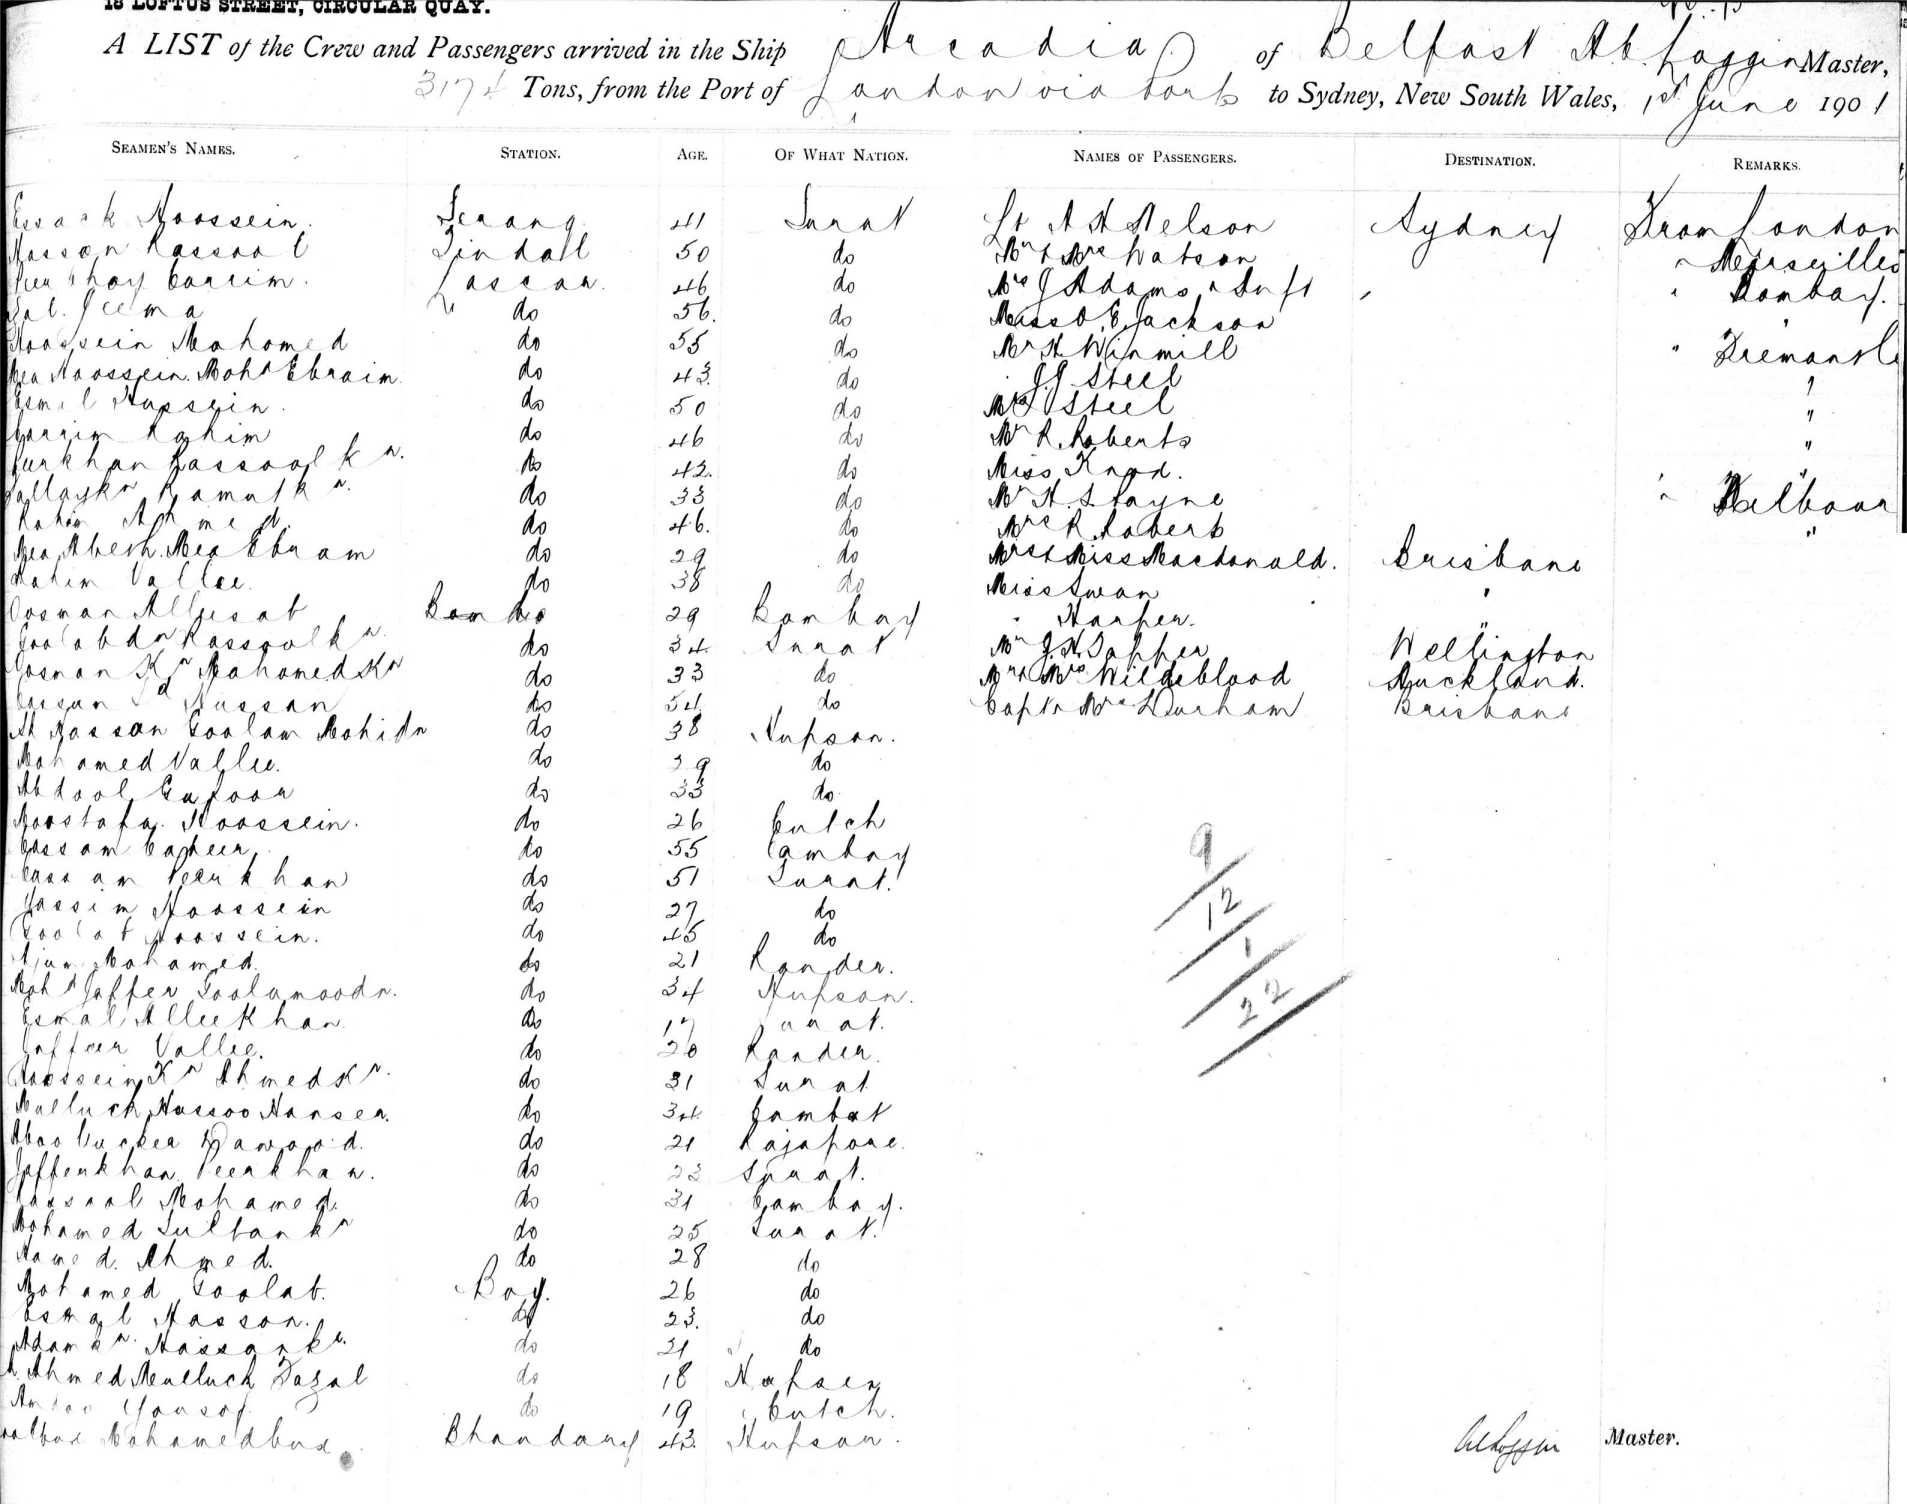 18 LOFTUS STREET, CIRCULAR QUAY.
A LIST of the Crew and Passengers arrived in the Ship Arcadia of Belfast A.b. Loggin Master,
3174 Tons, from the Port of London via Ports to Sydney, New South Wales, 1st June 1901
SEAMEN'S NAMES. STATION. AGE. OF WHAT NATION. NAMES OF PASSENGERS. DESTINATION. REMARKS.
Essack Hoossein. Serang 41 Surat Lt A H Nelson Sydney From London
Hassan Rassool Tindall 50 do Mr & Mrs Watson " Marseilles
Carrim. Lascar. 46 do Mrs J Adams & Inft " Bombay.
Jeema do 56. do Miss O. E. Jackson "
Hoossein Mahomed do 55 do Mr H Winmill " Fremantle
Mea Hoossein. Mohd Ebraim do 43. do J. J. Steel "
Esmal Hussein. do 50 do Mrs J Steel "
Carrim Rahim do 46 do Mr R. Roberts "
Rassool Kn. do 42. do Miss Knod. "
Ramatkn. do 33 do Mr H. S. Payne " Melbour
Rahim Ahmed. do 46. do Mrs R. Roberts "
Mea Mea Ebram do 29 do Mrs & Miss Macdonald. Brisbane
Rahim Vallee. do 38 do Miss Swan "
Oosman do 29 Bombay " Harper. "
Goolabdn Rassoolkn do 34. Surat Mr J. H. Topper Wellington
Oosman Kn Mahomedkn do 33 do Mr & Mrs Wildeblood Auckland.
Hassan do 54 do Capt & Mrs Durham Brisbane
Hassan Goolam Mohidn do 38 Hupson.
Mahomed Vallee. do 29 do
Abdool Gafoor do 33 do
Moostafa. Hoossein. do 26 Cutch
Cassam do 55 Cambay
Cassam Peerkhan do 51 Surat.
Jassim Hoossein do 27 do
Goolab Hoossein. do 45 do
Mahomed. do 21 Rander.
Mohd Jaffer Goolamoodn. do 34 Hupson.
Esmal Alleekhan do 17 Surat.
Jaffeer Vallee. do 20 Rander.
Hoossein Kn Ahmedkn. do 31 Surat
Mulluck Hassoo Hansea. do 34. Cambat
Aboobucker Dawood. do 21 Rajapore.
Jafferkhan Peerkhan. do 23 Surat.
Rassool Mohamed. do 31 Cambay.
Mohamed Sultankn do 25 Surat.
Hamed. Ahmed. do 28 do
Mohamed Goolab. Boy. 26 do
Esmal Hasson. do 23. do
Adamkn. Hassankn. do 21 do
Ahmed Mulluck Fazal do 18 Hupson
Yousof do 19 Cutch.
Mahomedbux Bhandary 43. Hupson.
9/12/1/22
A.b. Loggin Master.